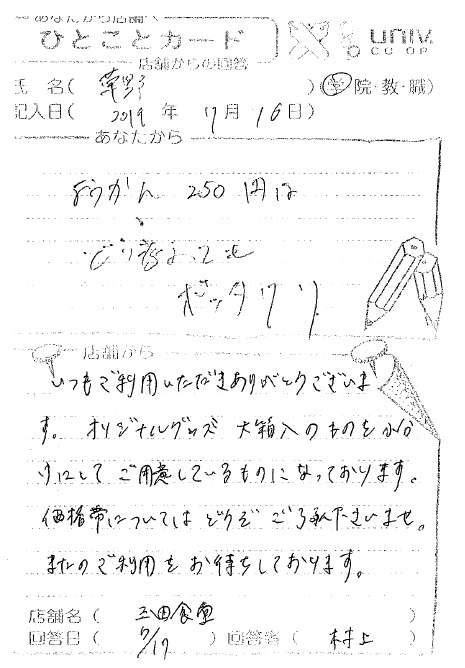 あなたから店舗へ
ひとことカード
店舗からの回答
univ.
CO-OP
氏 名( 草野 )(学・院・教・職)
記入日( 2019 年 7月 16日)
あなたから
ようかん 250円は
どう考えっても
ボッタクリ
店舗から
いつもご利用いただきありがとうございま
す。オリジナルグッズ 大箱入のものを小分
けにして ご用意しているものになっております。
価格帯についてはどうぞ ご了承下さいませ。
またのご利用をお待ちしております。
店舗名( 三田食堂 )
回答日( 7/17 )回答者( 村上 )